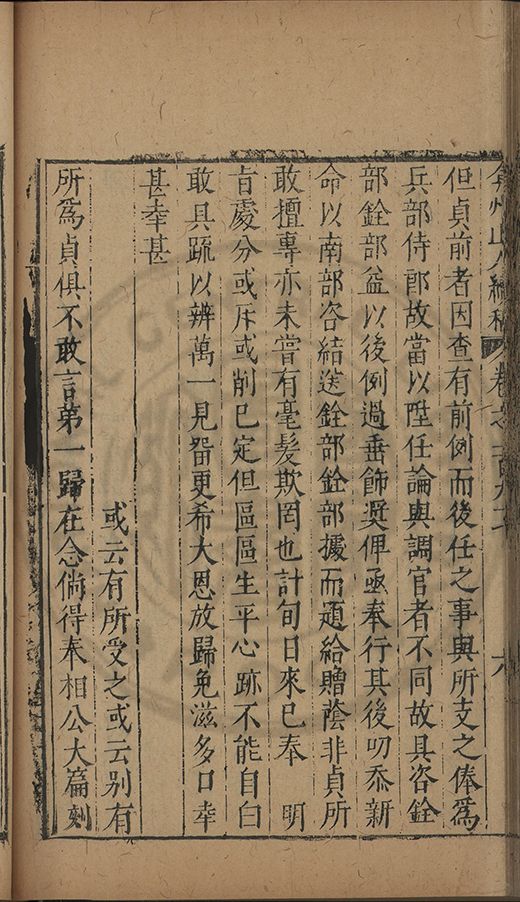 弇州山人續稿 卷之一百九十 六
但貞前者因查有前例而後任之事與所支之俸爲
兵部侍郎故當以陞任論與調官者不同故具咨銓
部銓部益以後例過垂飾奬俾亟奉行其後叨忝新
命以南部咨結送銓部銓部據而題給贈蔭非貞所
敢擅專亦未嘗有毫髮欺罔也計旬日來已奉 明
旨處分或斥或削已定但區區生平心跡不能自白
敢具疏以辨萬一見畱更希大恩放歸免滋多口幸
甚幸甚
或云有所受之或云别有
所爲貞俱不敢言第一歸在念倘得奉相公大篇刻